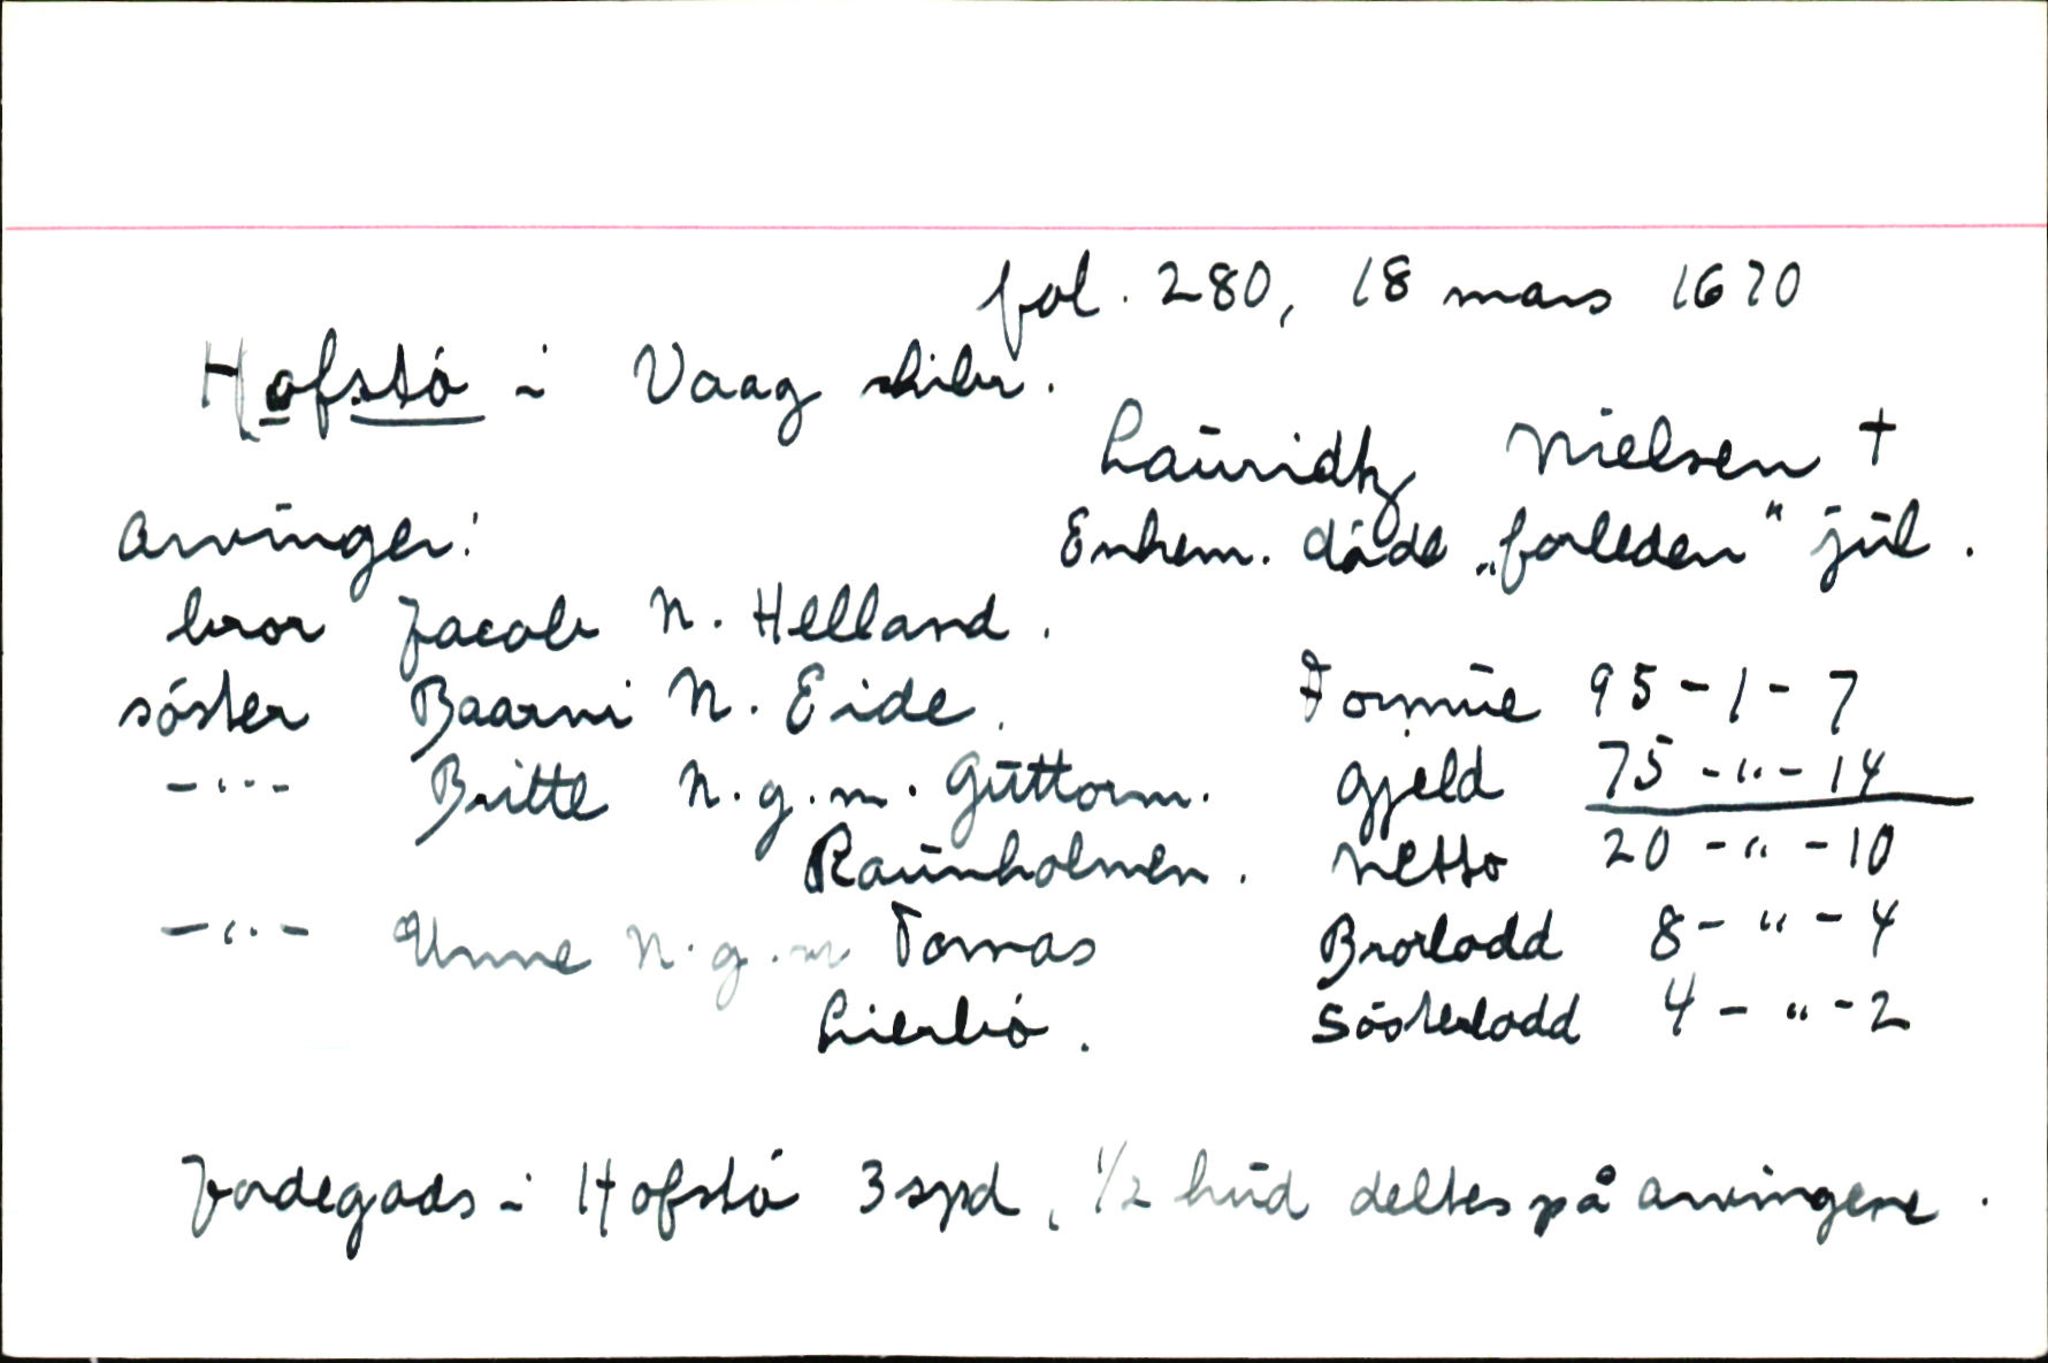 fol. 280, 18 mars 1670
Hofstó i Vaag skibr.
Lauridtz Nielsen †
Arvinger:
Enkem. dóde „forleden" jul.
bror Jacob N. Helland.
söster Baarni N. Eide.
Formue 95 - 1 - 7
-"- Britte N. g. m. Guttorm.
Gjeld 75 - " - 14
Raunholmen.
Netto 20 - " - 10
-"- Unne N. g. m Tomas
Brorlodd 8 - " - 4
Lierbó.
Sösterlodd 4 - " - 2
Jordegods i Hofstó 3 spd, 1/2 hud deltes på arvingene.